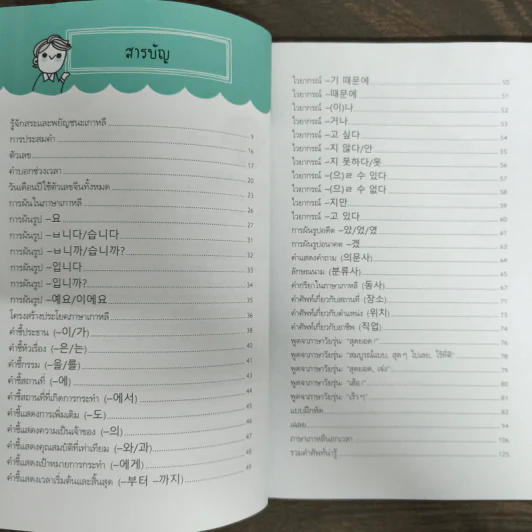 สารบัญ
รู้จักสระและพยัญชนะเกาหลี 9
การประสมคำ 16
ตัวเลข 17
คำบอกช่วงเวลา 20
วันเดือนปีใช้ตัวเลขจีนทั้งหมด 23
การผันในภาษาเกาหลี 26
การผันรูป -요 27
การผันรูป -ㅂ니다/습니다 31
การผันรูป -ㅂ니까/습니까? 32
การผันรูป -입니다 33
การผันรูป -입니까? 34
การผันรูป -예요/이에요 35
โครงสร้างประโยคภาษาเกาหลี 36
คำชี้ประธาน (-이/가) 38
คำชี้หัวเรื่อง (-은/는) 40
คำชี้กรรม (-을/를) 41
คำชี้สถานที่ (-에) 43
คำชี้สถานที่ที่เกิดการกระทำ (-에서) 44
คำชี้แสดงการเพิ่มเติม (-도)
คำชี้แสดงความเป็นเจ้าของ (-의)
คำชี้แสดงคุณสมบัติที่เท่าเทียม (-와/과)
คำชี้แสดงเป้าหมายการกระทำ (-에게)
คำชี้แสดงเวลาเริ่มต้นและสิ้นสุด (-부터 -까지) 49
ไวยากรณ์ -기 때문에 50
ไวยากรณ์ -때문에 51
ไวยากรณ์ -(이)나 52
ไวยากรณ์ -거나 53
ไวยากรณ์ -고 싶다 54
ไวยากรณ์ -지 않다/안 55
ไวยากรณ์ -지 못하다/못 56
ไวยากรณ์ -(으)ㄹ 수 있다
ไวยากรณ์ -(으)ㄹ 수 없다
ไวยากรณ์ -지만
ไวยากรณ์ -고 있다
การผันรูปอดีต -았/었/였
การผันรูปอนาคต -겠
คำแสดงคำถาม (의문사)
ลักษณนาม (분류사)
คำกริยาในภาษาเกาหลี (동사)
คำศัพท์เกี่ยวกับสถานที่ (장소) 71
คำศัพท์เกี่ยวกับตำแหน่ง (위치)
คำศัพท์เกี่ยวกับอาชีพ (직업) 74
พูดจาภาษาวัยรุ่น: "สุดยอด!" 76
พูดจาภาษาวัยรุ่น: "สมบูรณ์แบบ, สุดๆ ไปเลย,
พูดจาภาษาวัยรุ่น: "สุดยอด, เจ๋ง" 79
พูดจาภาษาวัยรุ่น:
พูดจาภาษาวัยรุ่น: "เร็วๆ"
แบบฝึกหัด 83
เฉลย 94
ภาษาเกาหลีนอกเวลา 106
รวมคำศัพท์น่ารู้ 125